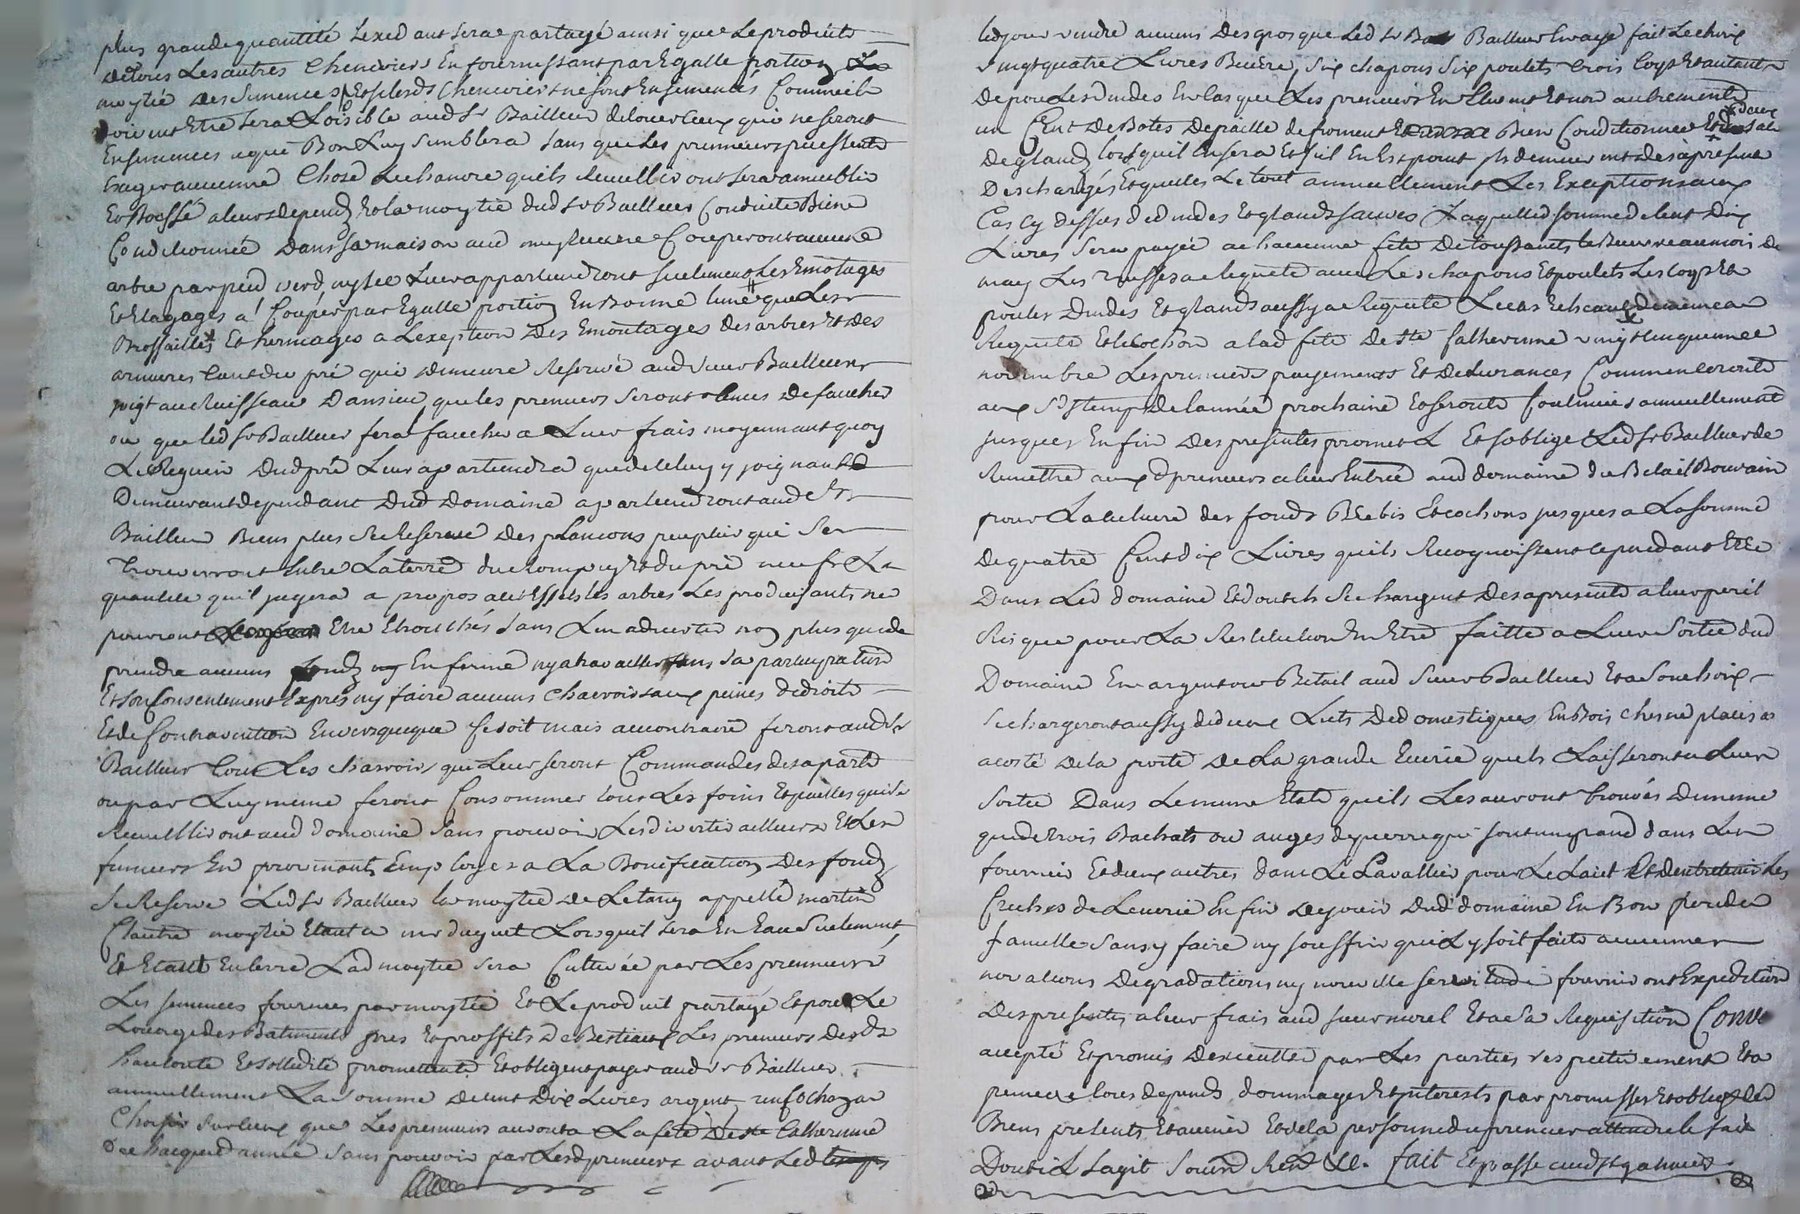 plus grande quantité Lexed ant sera partagé ainsi que Le produits
de tous Les autres Cheneviers En fournissant par Egalle portion La
moytié des Semences Et si lesds Cheneviers ne sont Ensemencés Comme ils
doivent Etre sera Loisible aud Sr Bailleur de louer Ceux qui ne seront
Ensemencés a qui Bon Luy Semblera Sans que Les prenneurs puissent
Exiger aucune Chose Le chanvre quils Recuelliront sera
a leurs depend Et la moytié dud Sr Bailleur Conduite Bien
Conditionnée Dans sa maison aud ne Couperont aucune
arbre par pied verd ny sec Leur appartiendront seulement Les Emotages
Et Elagages a Couper par Egalle portion En Bonne lune que Les
Brossailles Et hermages a Lexeption Des Emontages des arbres Et des
du pré qui demeure Reservé aud Sieur Bailleur
joigt au Ruisseau Dansieu que les preneurs seront tenus De faucher
ou que led Sr Bailleur fera faucher a Leur frais moyennant quoy
Le Reguin Dud pré Leur apartiendra que de celuy y joignant
Demeurant dependant Dud Domaine apartiendront aud Sr
Bailleur Biens plus Se Reserve Des plancons peuplier qui Se
trouverront Entre La terre du Rompuy Et du pré neuf La
quantité quil jugera a propos Les arbres Les produisants ne
pourront Etre Etrouchés Sans Lui advertir non plus que de
prendre aucuns fond En ferme ny a travailler sans Sa participation
Et Son Consentement Exprés ny faire aucuns Charrois aux peines de droits
Et de Contravention Envers que Ce soit mais au contraire feront aud Sr
Bailleur tout Les charrois que Leur seront Commandes de sa part
ou par Luy meme feront Consommer tous Les foins Et pailles quils
Recuelliront aud domaine Sans pouvoir Les divertir ailleurs Et Les
fumiers En provenants Employer a La Bonification Des fond
Se Reserve Led Sr Bailleur la moytié De Letang appellé martin
L'autre moytié Etant a mr duguet Lors quil sera En Eau Seulement
Et Etant En terre Lad moytié sera Cultivée par Les prenneurs
Les semences fournies par moytié Et Le produit partagé Et pour Le
Louage des Batiments prés Et proffits De Bestiaux Les preneurs desds
Sollidité promettent Et obligent payer aud Sr Bailleur
annuellement La Somme De Cent Dix Livres argent, un Cochon a
Choisir Sur Ceux que Les preneurs auront a La fete De Ste Catherinne
De chaque année Sans pouvoir par Lesd preneurs avant Led temps
led jour vendre aucuns Des gros que Led Sr Bailleur En aye fait Le choix
Vingt quatre Livres Beure, Six chapons Six poulets trois Coqs Et autant
De poules dindes En Cas que Les preneurs En Elevent Et non autrement
un Cent De Botes De paille de froment Bien Conditionnée Et deux sacs
De gland lors quil En sera Et Sil En Est point ils demeurent dés àprésent
Deschargés Et quittes Le tout annuellement Les Exceptions aux
Cas Cy dessus de dindes Et glands sauves Laquelle somme de Cent Dix
Livres Sera payée a chacune fete De toussants Le Beure au mois de
may Les a Requete avec Les chapons Et poulets Les Coqs Et
poules Dindes Et glands aussy a Requete Leurs Echeants de meme a
Requete Et le Cochon a lad fete De Ste Catherinne vingt Cinquieme
novembre Les premiers payements Et Delivrances Commenceront
aux Sds temps De lannée prochaine Et seront Continués annuellement
jusques En fin Des presentes promet Et soblige Led Sr Bailleur de
Remettre aux d preneurs a leur Entrée aud domaine du Betail Bouvain
pour La Culture des fonds Brebis Et Cochons jusques a La Somme
De quatre Cent dix Livres quils Recognoissent cependant Etre
Dans Led domaine Et dont ils Se chargent Des apresent a leur peril
Risque pour La Restitution En Etre faitte a Leur Sortie Dud
Domaine En argent ou Betail aud Sieur Bailleur Et a Son choix
Se chargeront aussy de deux Lits De domestiques En Bois Chesne placés
a costé De la porte De La grande Ecurie quils Laisseront a Leur
Sortie Dans Le meme Etat quils Les auront trouvés De meme
que de trois Bachats ou auges de pierre qui sont un grand dans Les
fournier Et deux autres dans Le Cavallier pour Le Lait Et d'entretenir Les
Creches de Lecurie Enfin De jouir Dud domaine En Bon pere de
famille Sans y faire ny Souffrir qu'il y soit faite aucunes
novations Degradations ny nouvelle servitude fourniront Expedition
Des presentes a leur frais aud Sieur murel Et a Sa Requisition Conve
accepté Et promis Dexecutter par Les parties respectivement Et a
peine de tous depends dommages Et interests par promesses Et oblign de
Biens presents Et avenir Et de la personne du prenneur attendu le fait
Dont il Sagit Soumn Rend &c. fait Et passé aud St